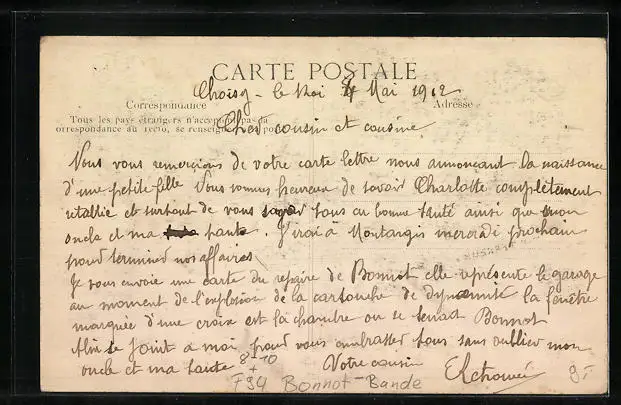 CARTE POSTALE
Choisy-le-Roi 4 Mai 1912
Correspondance Adresse
Tous les pays étrangers n'acceptent pas la
correspondance au recto, se renseigner à la poste
Cher cousin et cousine
Nous vous remercions de votre carte lettre nous annonçant la naissance
d'une petite fille Nous sommes heureux de savoir Charlotte complètement
rétablie et surtout de vous savoir tous en bonne santé ainsi que mon
oncle et ma tante. J'irai à Montargis mercredi prochain
pour terminer nos affaires
Je vous envoie une carte du repaire de Bonnot elle représente le garage
au moment de l'explosion de la cartouche de dynamite la fenêtre
marquée d'une croix est la chambre ou se tenait Bonnot
Aline se joint a moi pour vous embrasser tous sans oublier mon
oncle et ma tante
Votre cousin
8 + 10
F94 Bonnot-Bande
9.-